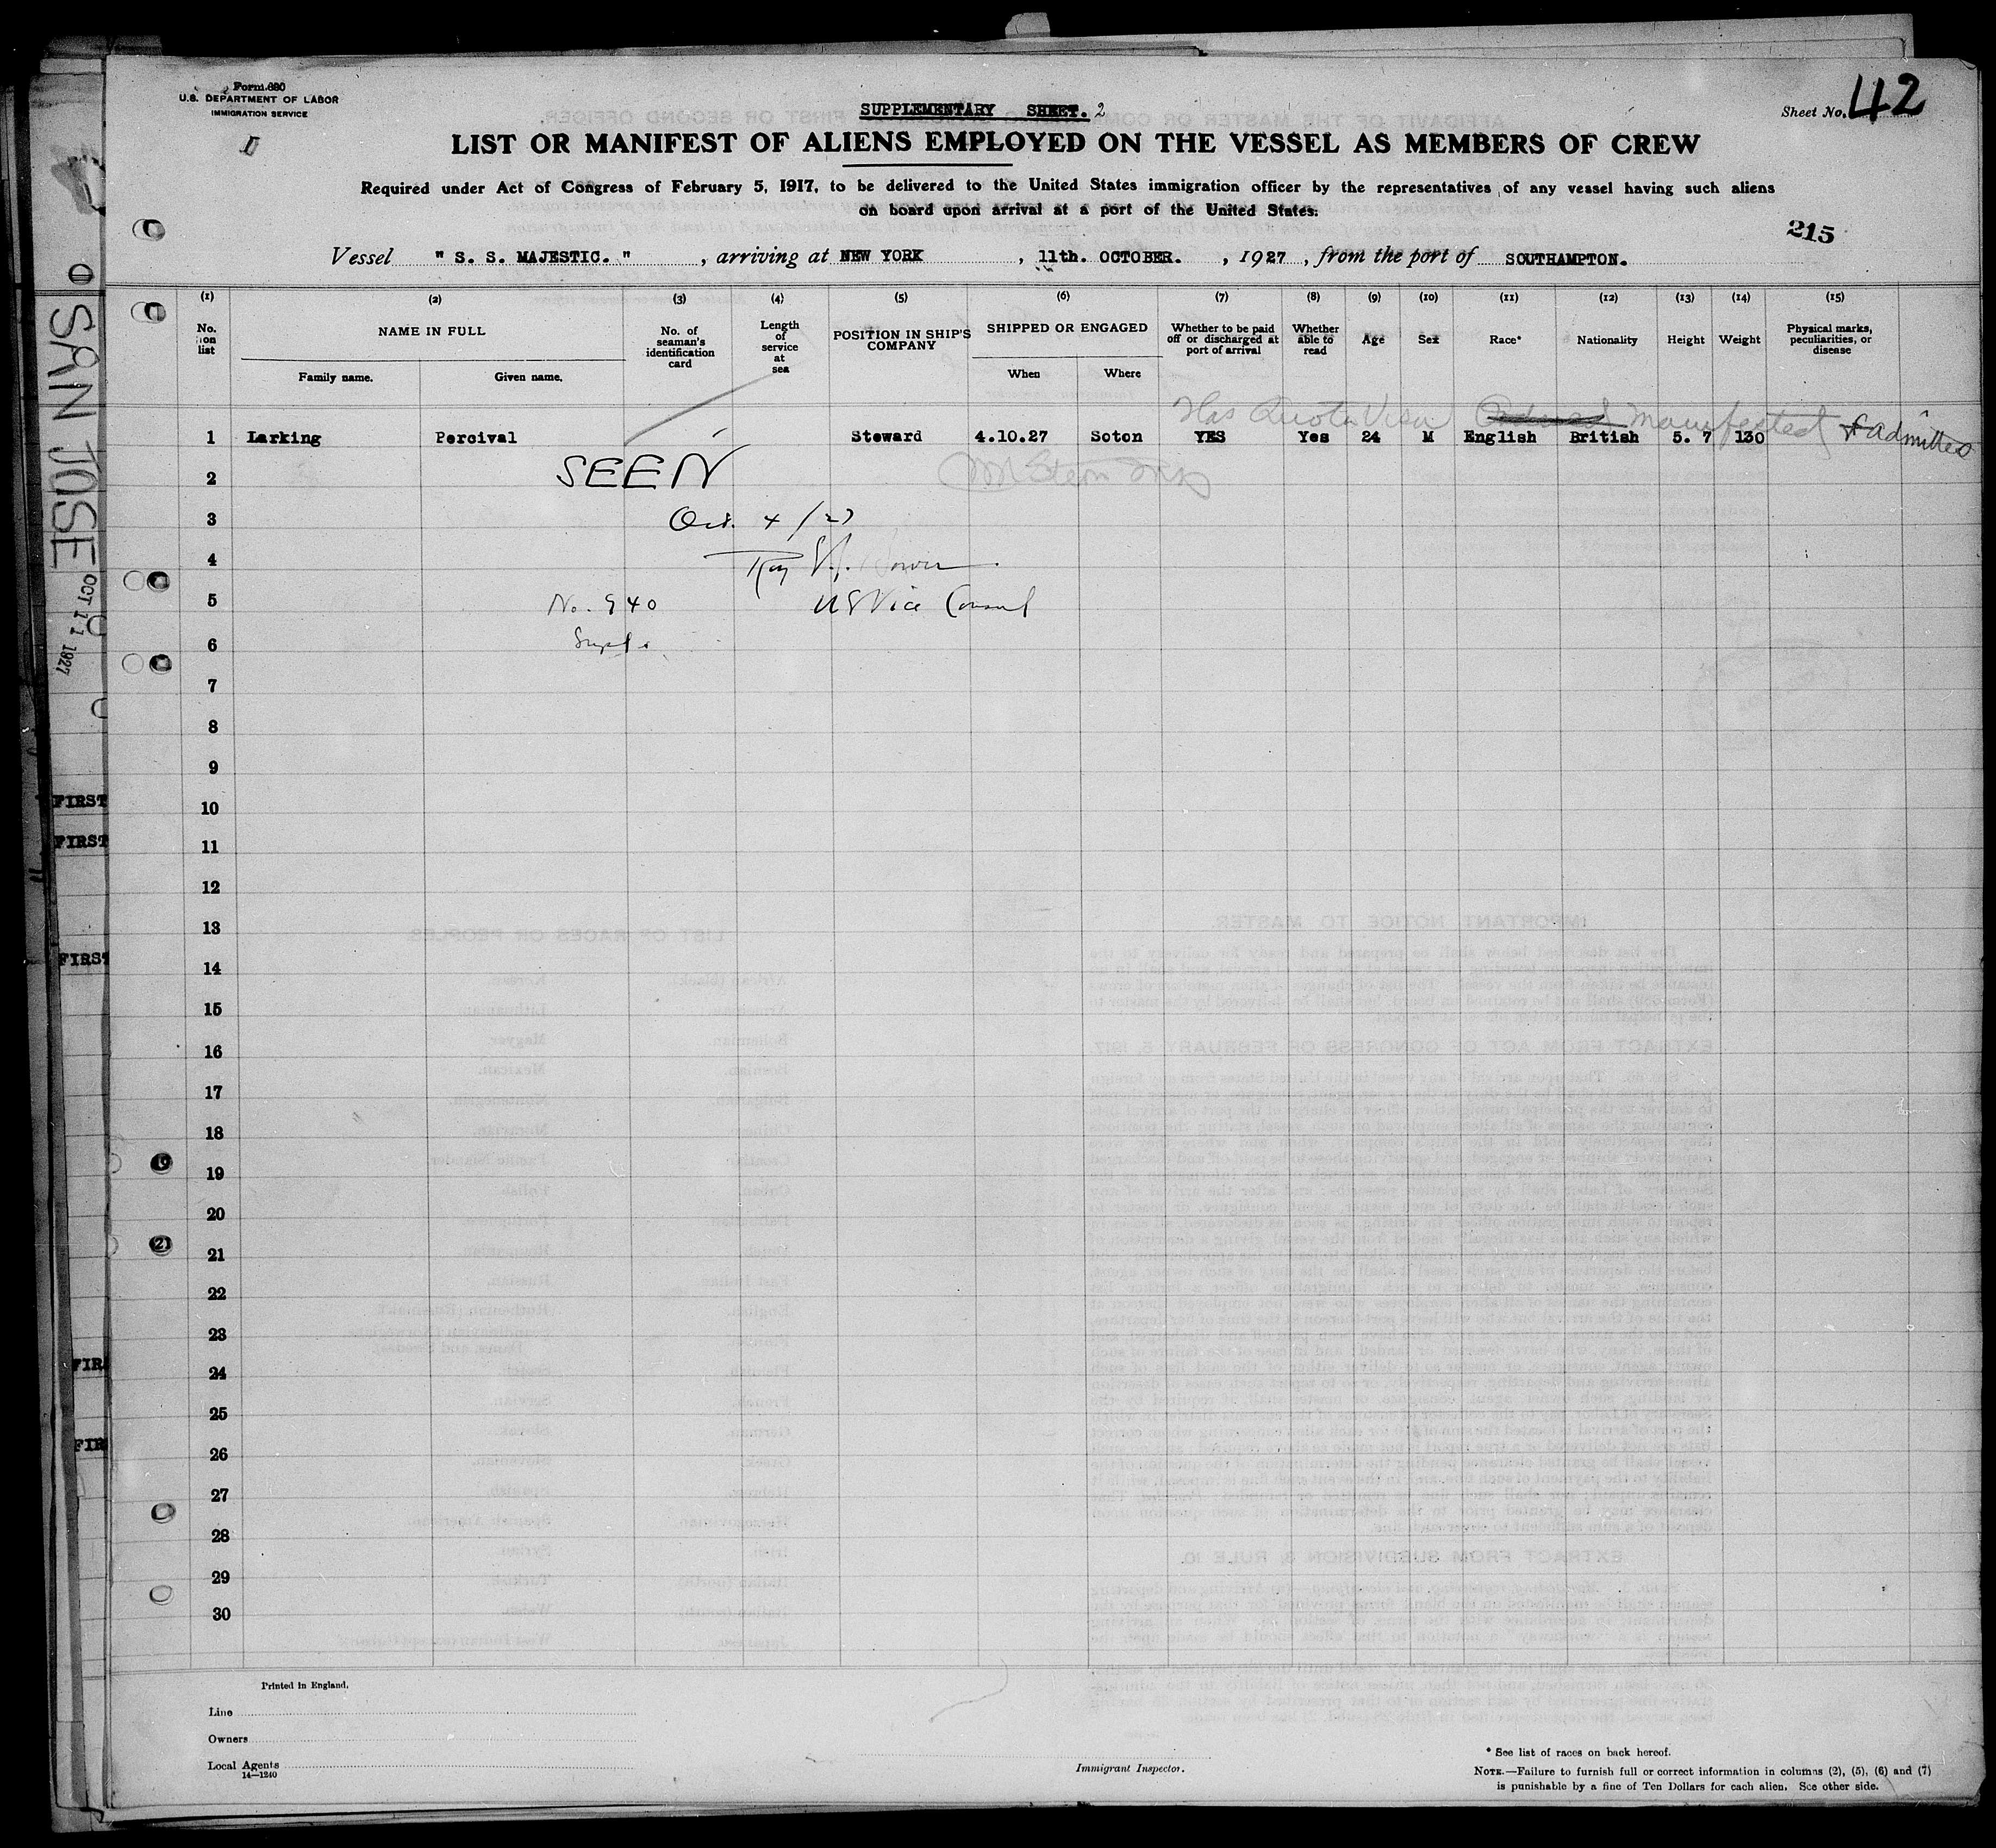 Form 680
U.S. DEPARTMENT OF LABOR
IMMIGRATION SERVICE
SUPPLEMENTARY SHEET. 2
Sheet No. 42
LIST OR MANIFEST OF ALIENS EMPLOYED ON THE VESSEL AS MEMBERS OF CREW
Required under Act of Congress of February 5, 1917, to be delivered to the United States immigration officer by the representatives of any vessel having such aliens
on board upon arrival at a port of the United States.
215
Vessel " S. S. MAJESTIC. " , arriving at NEW YORK , 11th. OCTOBER. , 1927 , from the port of SOUTHAMPTON.
(1) (2) (3) (4) (5) (6) (7) (8) (9) (10) (11) (12) (13) (14) (15)
No. on list
NAME IN FULL
Family name. Given name.
No. of seaman's identification card
Length of service at sea
POSITION IN SHIP'S COMPANY
SHIPPED OR ENGAGED
When Where
Whether to be paid off or discharged at port of arrival
Whether able to read
Age
Sex
Race*
Nationality
Height
Weight
Physical marks, peculiarities, or disease
Has Quota Visa Manifested & admitted
1 Larking Percival Steward 4.10.27 Soton YES Yes 24 M English British 5. 7 130
2 SEEN
3 Oct. 4 /27
4 Roy
5 No. 940 US Vice Consul
6 Suppl.
7
8
9
10
11
12
13
14
15
16
17
18
19
20
21
22
23
24
25
26
27
28
29
30
Printed in England.
Line
Owners
Local Agents
14—1240
Immigrant Inspector.
* See list of races on back hereof.
NOTE.—Failure to furnish full or correct information in columns (2), (5), (6) and (7)
is punishable by a fine of Ten Dollars for each alien. See other side.
SAN JOSE
OCT 11 1927
FIRST
FIRST
FIRST
FIR
FIR